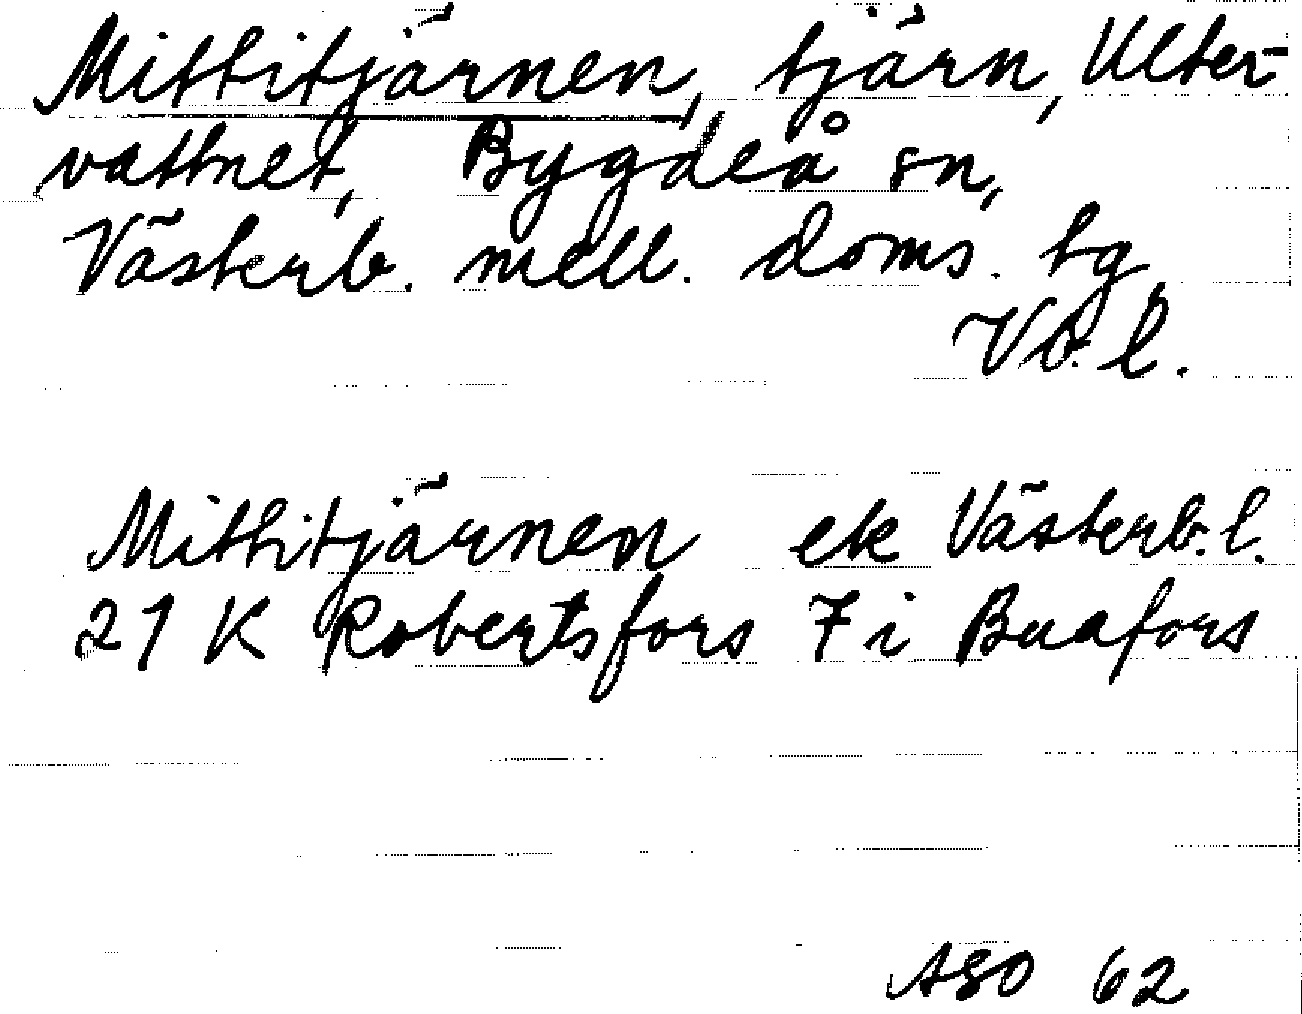 Mittitjärnen, tjärn, Ulter-
vattnet, Bygdeå sn,
Västerb. mell. doms. tg
Vb. l.
Mittitjärnen ek Västerb. l.
21 K Robertsfors 7 i Buafors
ASO 62